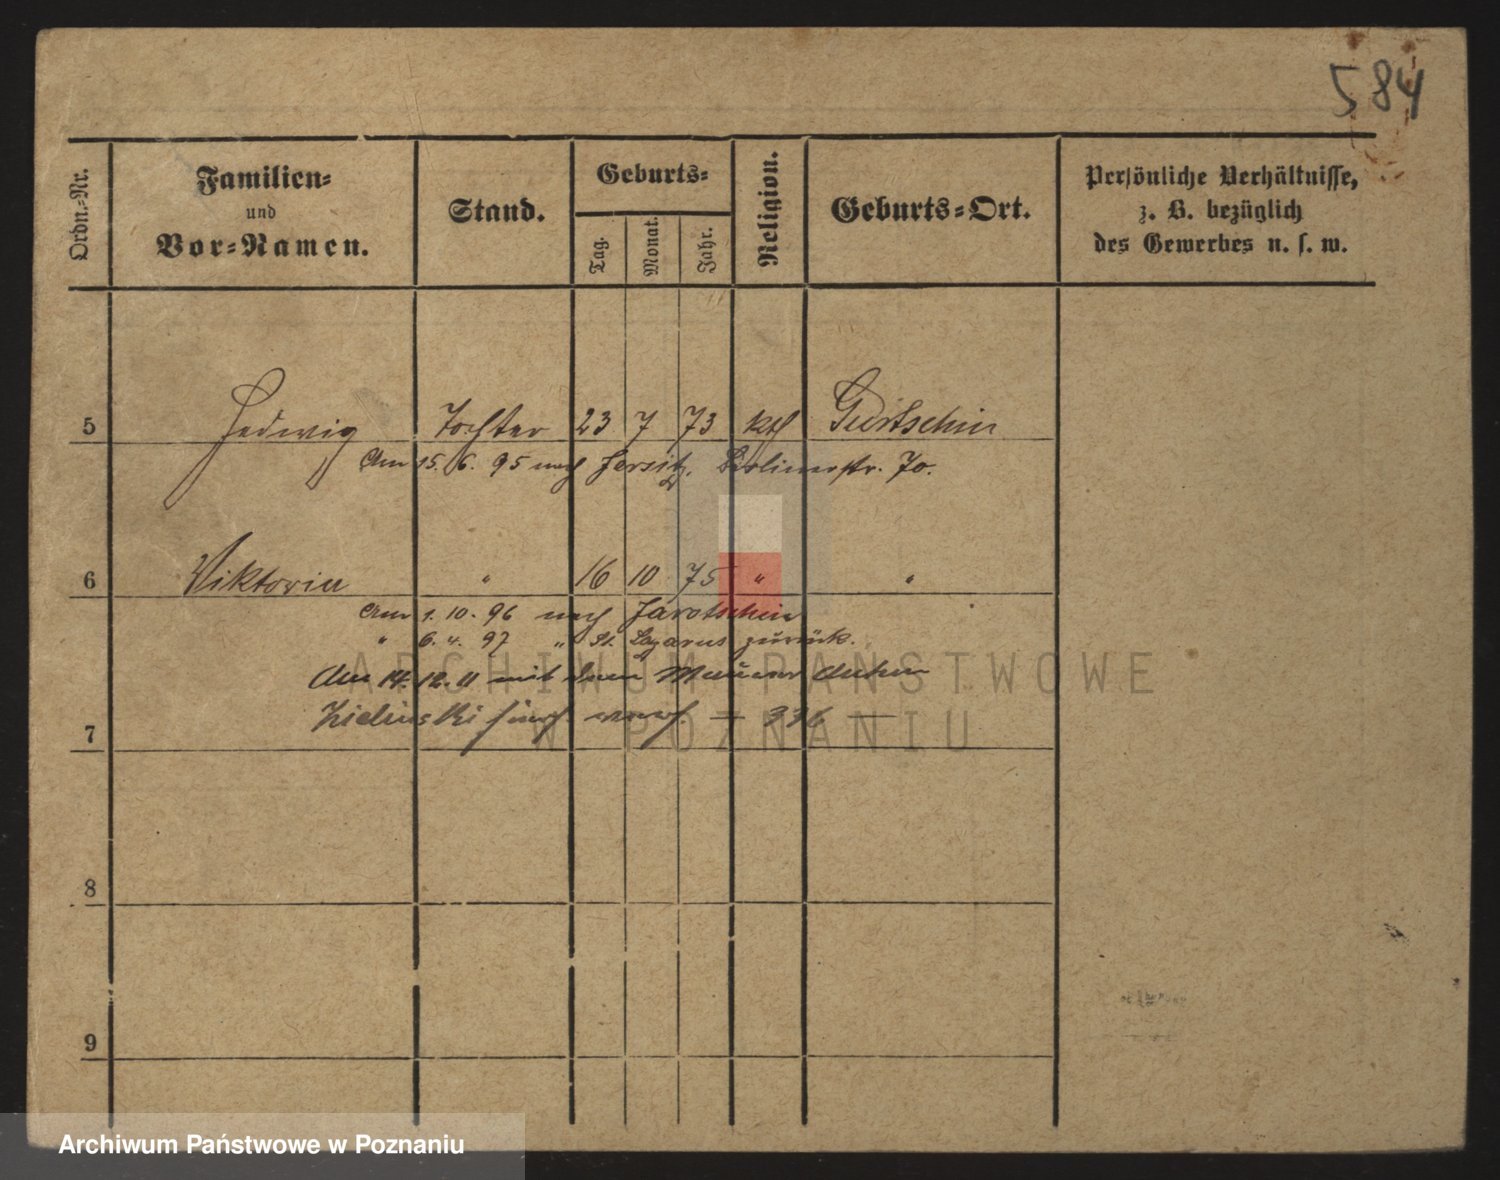 584
Ordn.-Nr.
Familien-
und
Vor-Namen.
Stand.
Geburts-
Tag.
Monat.
Jahr.
Religion.
Geburts-Ort.
Persönliche Verhältnisse,
z. B. bezüglich
des Gewerbes u. s. w.
5 Hedwig Tochter 23 7 73 kth
Am 15. 6. 95 nach Jersitz, Berlinerstr. 70.
6 Viktoria " 16 10 75 " "
Am 1. 10. 96 nach Jarotschin
" 6. 4. 97 " St. Lazarus zurück.
Am 14. 12. 11 mit dem Maurer Anton
Zielinski - 336 -
7
8
9
ARCHIWUM PAŃSTWOWE
W POZNANIU
Archiwum Państwowe w Poznaniu